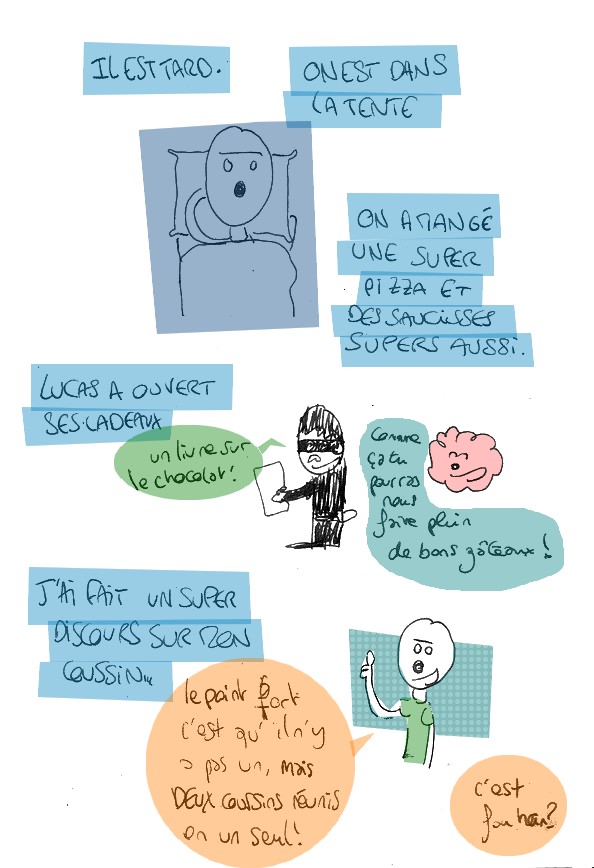 IL EST TARD.
ON EST DANS
LA TENTE
ON A MANGÉ
UNE SUPER
PIZZA ET
DES SAUCISSES
SUPERS AUSSI.
LUCAS A OUVERT
SES CADEAUX
un livre sur
le chocolat!
Comme
ça tu
pourras
nous
faire plein
de bons gâteaux!
J'AI FAIT UN SUPER
DISCOURS SUR MON
COUSSIN...
le point fort
c'est qu'il n'y
a pas un, mais
DEUX coussins réunis
en un seul!
c'est
fou hein?